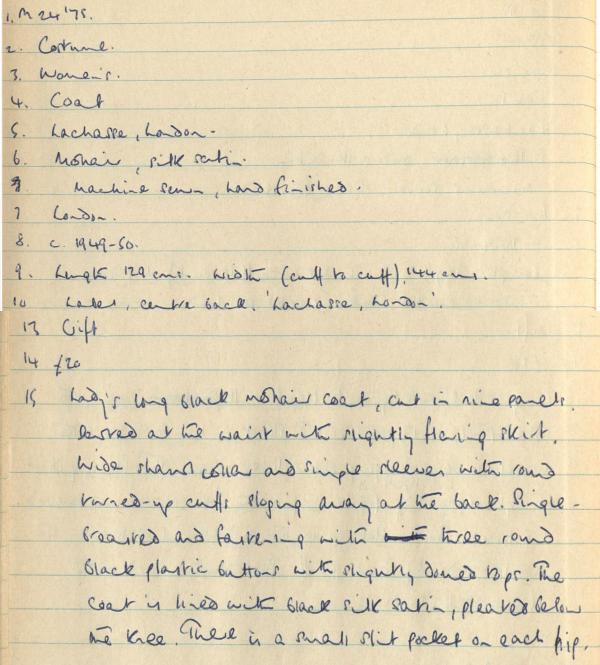 1. M 24 '75.
2. Costume.
3. Women's.
4. Coat
5. Lachasse, London.
6. Mohair, silk satin.
Machine sewn, hand finished.
7 London.
8. c. 1949-50.
9. Length 129 cms. Width (cuff to cuff), 144 cms.
10 Label, centre back. 'Lachasse, London'.
13 Gift
14 £20
15 Lady's long black mohair coat, cut in nine panels.
at the waist with slightly flaring skirt.
Wide shawl collar and simple sleeves with round
turned-up cuffs sloping away at the back. Single-
breasted and fastening with three round
black plastic buttons with slightly domed tops. The
coat is lined with black silk satin, pleated below
the knee. There is a small slit pocket on each hip.